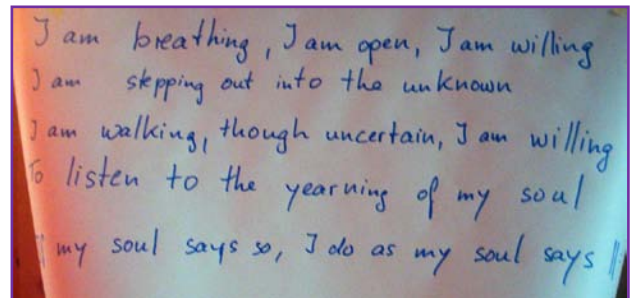 I am breathing, I am open, I am willing
I am stepping out into the unknown
I am walking, though uncertain, I am willing
To listen to the yearning of my soul
|| my soul says so, I do as my soul says ||